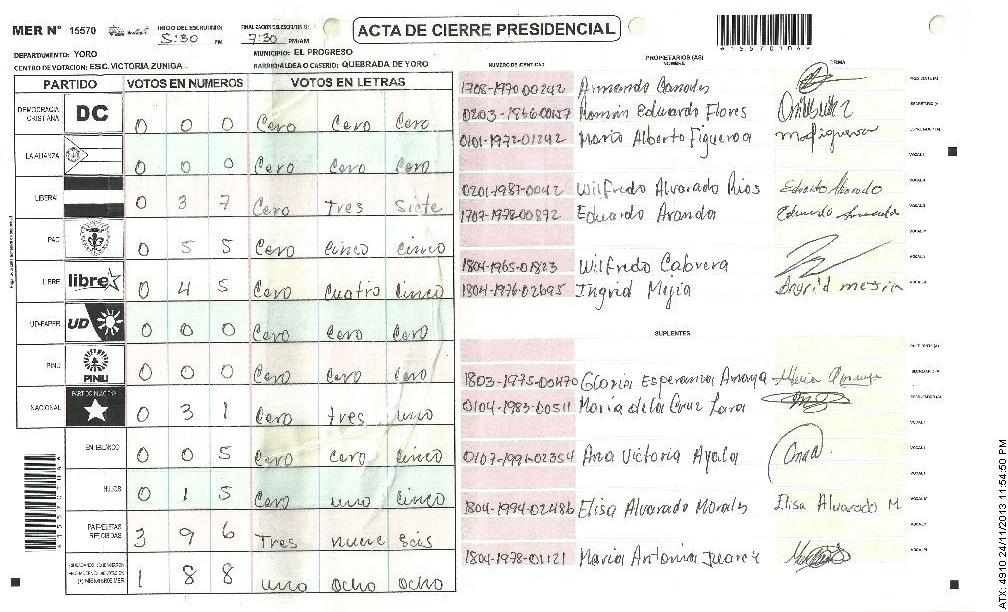 MER N° 15570
INICIO DEL ESCRUTINIO:
5:30 PM
FINALIZACION DEL ESCRUTINIO:
7:30 PM/AM
ACTA DE CIERRE PRESIDENCIAL
DEPARTAMENTO: YORO
MUNICIPIO: EL PROGRESO
CENTRO DE VOTACION: ESC. VICTORIA ZUNIGA
BARRIO/ALDEA O CASERIO: QUEBRADA DE YORO
PARTIDO VOTOS EN NUMEROS VOTOS EN LETRAS
DEMOCRACIA CRISTIANA DC 0 0 0 Cero Cero Cero
LA ALIANZA 0 0 0 Cero Cero Cero
LIBERAL 0 3 7 Cero Tres Siete
PAC 0 5 5 Cero Cinco Cinco
LIBRE libre 0 4 5 Cero Cuatro Cinco
UD-FAPER UD 0 0 0 Cero Cero Cero
PINU PINU 0 0 0 Cero Cero Cero
NACIONAL PARTIDO NACIONAL 0 3 1 Cero Tres uno
EN BLANCO 0 0 5 Cero Cero Cinco
NULOS 0 1 5 Cero uno Cinco
PAPELETAS RECIBIDAS 3 9 6 Tres nueve Seis
1 8 8 uno ocho ocho
NUMERO DE IDENTIDAD PROPIETARIOS (AS) NOMBRE FIRMA
1708-1970-00242 Armando Canales
0203-1966-00157 Ramón Eduardo Flores
0101-1972-01242 Mario Alberto Figueroa
0201-1987-0042 Wilfredo Alvarado Rios Eduardo Alvarado
1707-1978-00872 Eduardo Aranda Eduardo Aranda
1804-1965-01823 Wilfredo Cabrera
1804-1976-02695 Ingrid Mejia Ingrid mejia
SUPLENTES
1803-1975-00470 Gloria Esperanza Amaya
0104-1983-00511 Maria dela Cruz Lara
0107-1991-02354 Ana Victoria Ayala
1804-1994-02486 Elisa Alvarado Morales Elisa Alvarado M.
1804-1978-01121 Maria Antonia Juarez
ATX: 4910 24/11/2013 11:54:50 PM